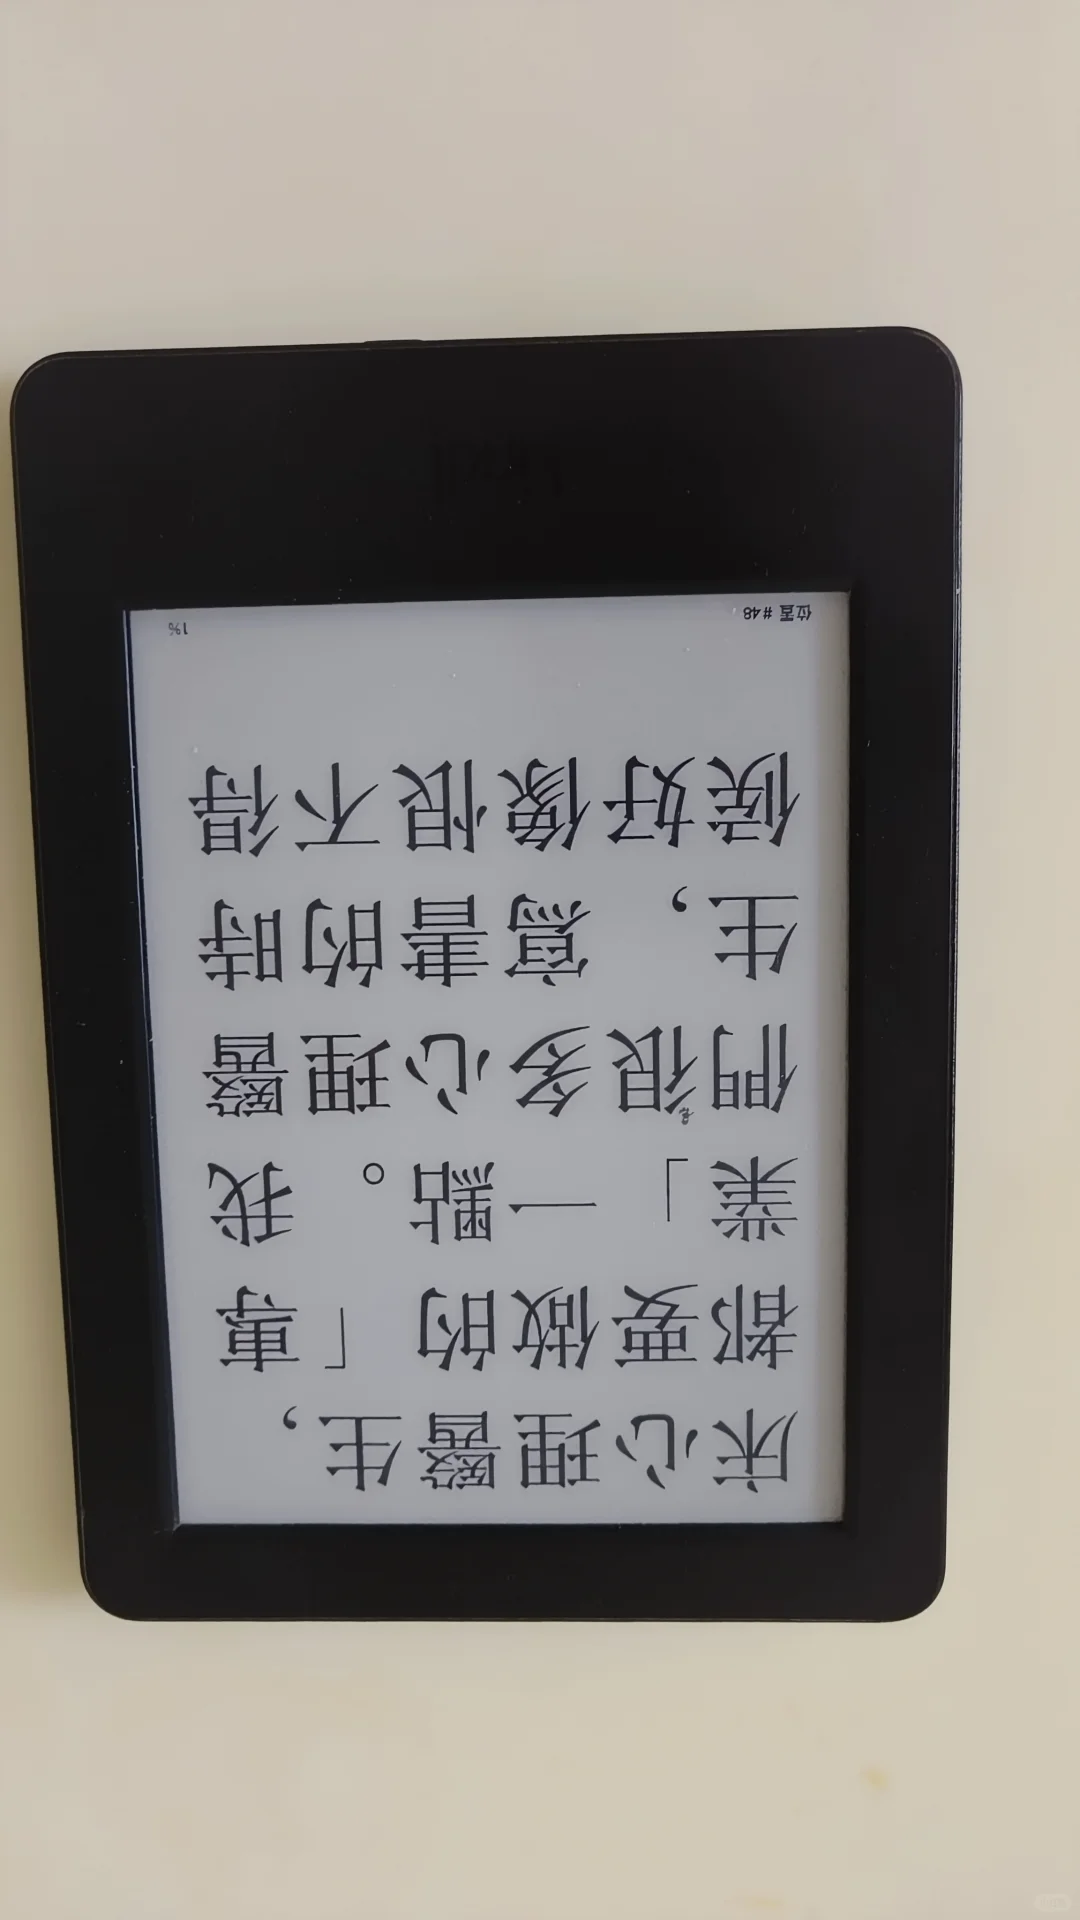 床心理醫生，
都要做的「專
業」一點。我
們很多心理醫
生，寫書的時
候好像恨不得
位置 #48 1%